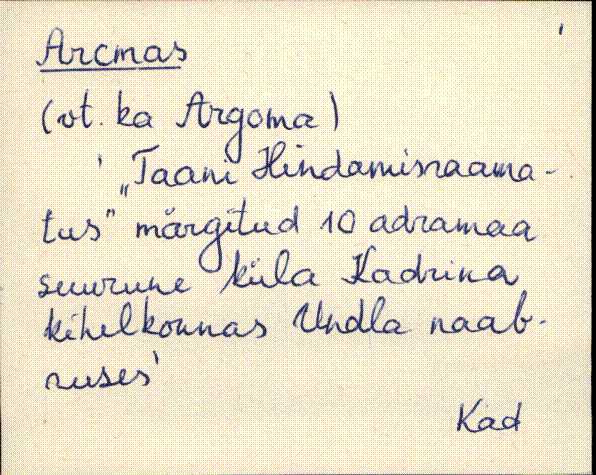 Arcmas
(vt. ka Argoma)
' „Taani Hindamisraama-
tus" märgitud 10 adramaa
suurune küla Kadrina
kihelkonnas Undla naab-
ruses'
Kad